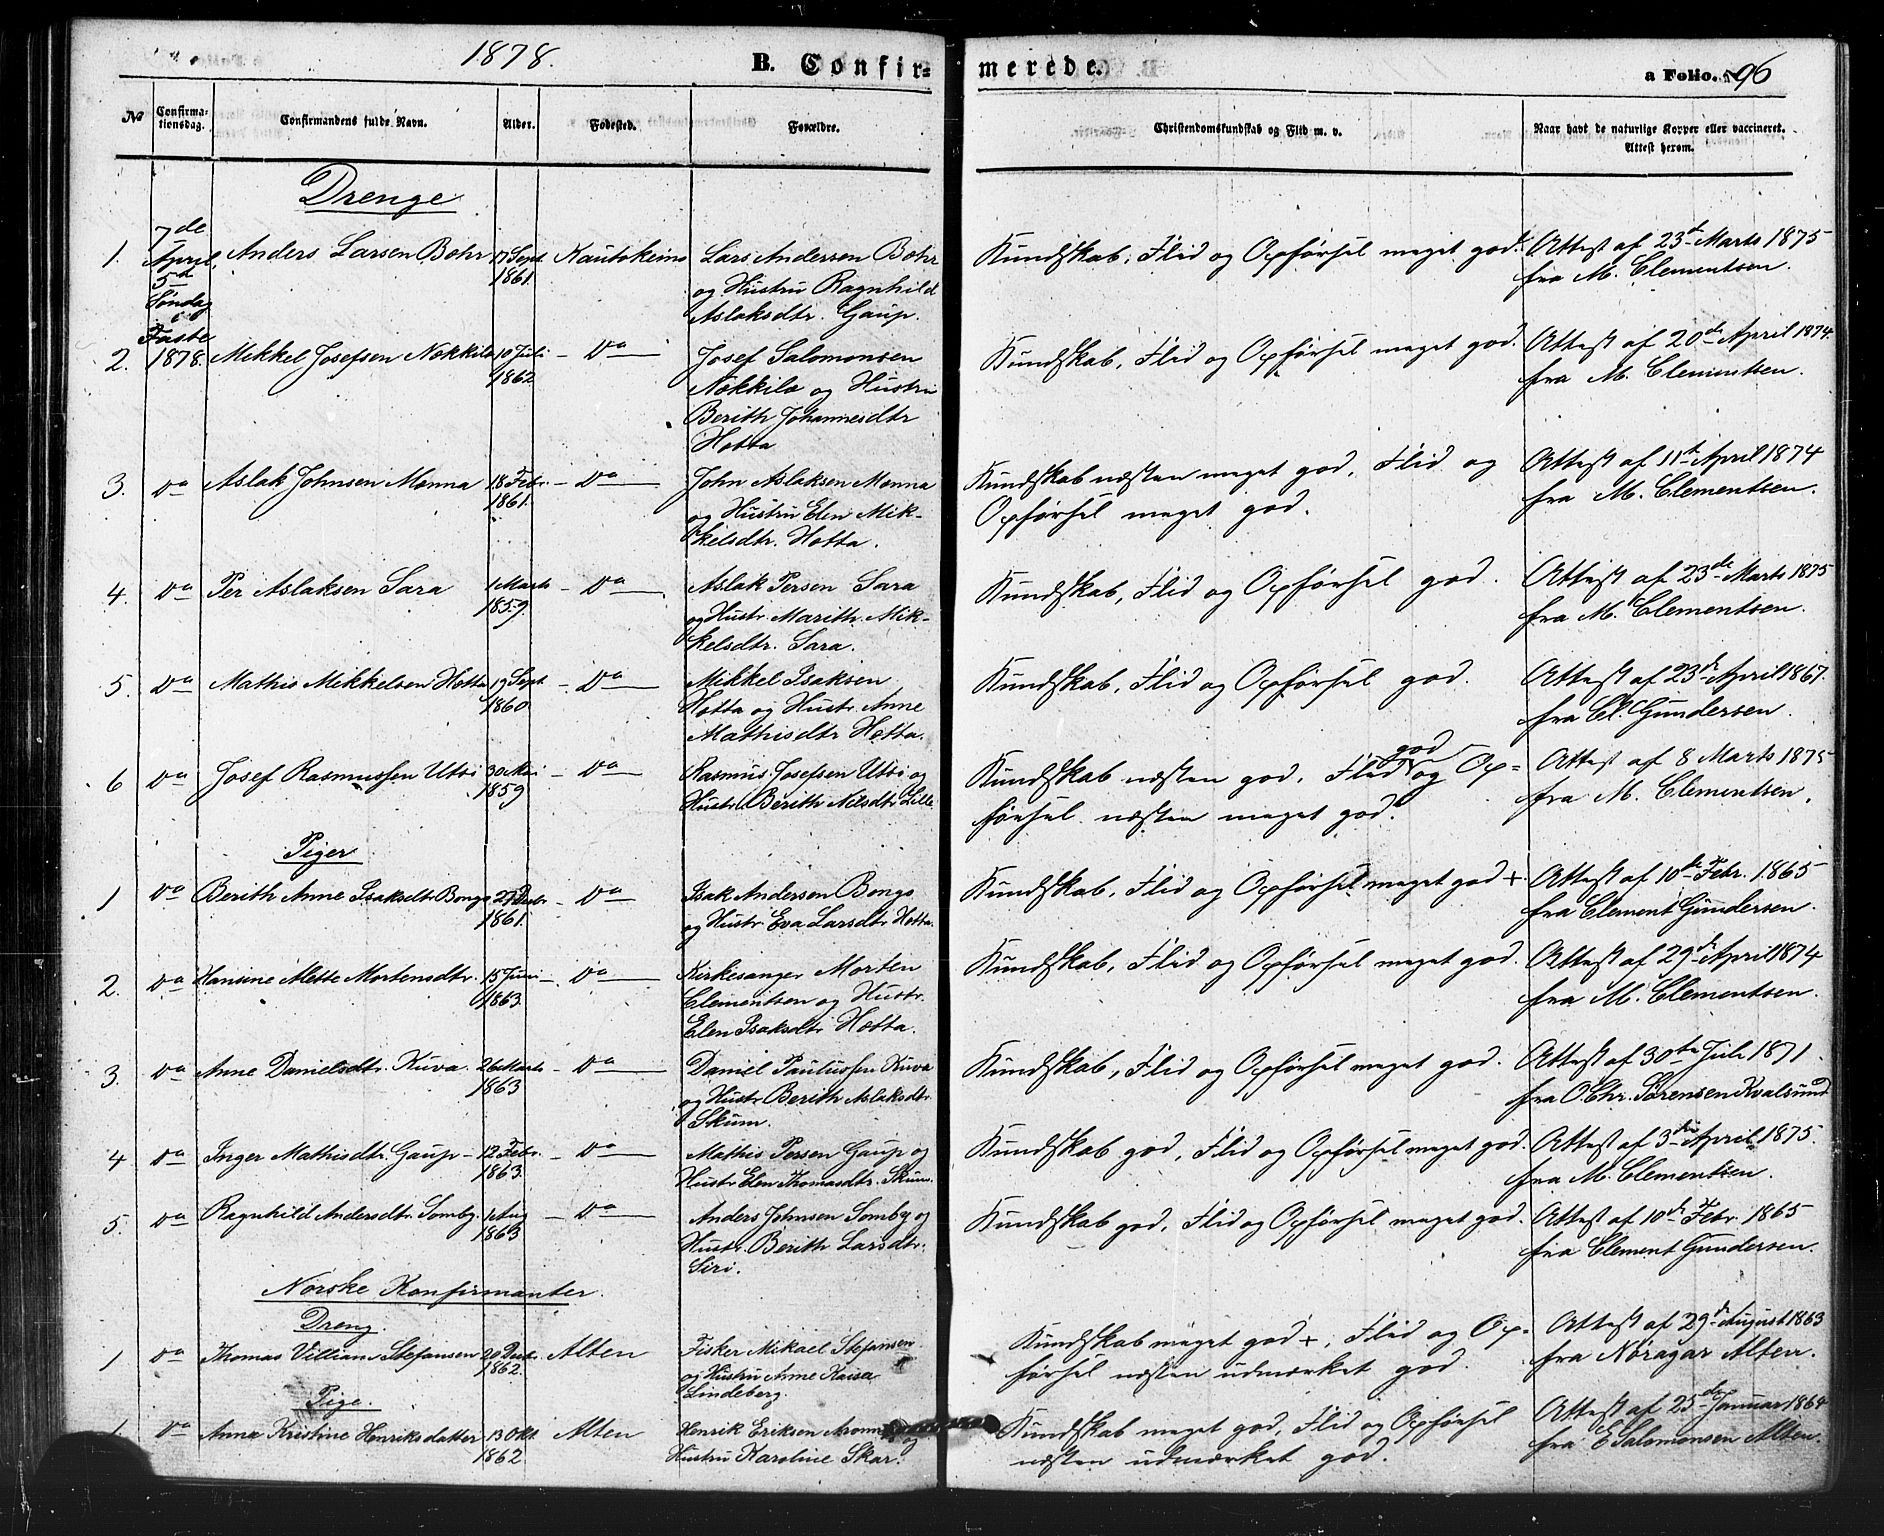 1878.
B. Confir=
merede.
a Folio. 96
No
Confirma-
tionsdag.
Confirmandens fulde Navn.
Alder.
Fødested.
Forældre.
Christendomskundskab og Flid m. v.
Naar havt de naturlige Kopper eller vaccineret.
Attest herom.
Drenge
1. 7de April, 5te Søndag i Faste 1878. Anders Larsen Bohr 17 Sept 1861. Kautokeino
Lars Andersen Bohr
og Hustru Ragnhild
Aslaksdtr. Gaup.
Kundskab, Flid og Opførsel meget god. Attest af 23de Marts 1875
fra M. Clementsen.
2. Mikkel Josefsen Nækkila 10 Juli 1862 - Do
Josef Salomonsen
Nækkila og Hustru
Berith Johannesdtr
Hætta
Kundskab, Flid og Opførsel meget god. Attest af 20de April 1874.
fra M. Clementsen.
3. Do Aslak Johnsen Mænna 18 Febr. 1861. - Do
John Aslaksen Mænna
og Hustru Elen Mik-
kelsdtr. Hætta.
Kundskab næsten meget god, Flid og
Opførsel meget god.
Attest af 11te April 1874
fra M. Clementsen.
4. Do Per Aslaksen Sara 1 Marts 1859. - Do
Aslak Persen Sara
og Hustr. Marith Mik-
kelsdtr. Sara.
Kundskab, Flid og Opførsel god. Attest af 23de Marts 1875
fra M. Clementsen.
5. Do Mathis Mikkelsen Hætta 19 Sept 1860 - Do
Mikkel Isaksen
Hætta og Hustr. Anne
Mathisdtr Hætta.
Kundskab, Flid og Opførsel god. Attest af 23de April 1867.
fra Cl. Gundersen.
6 Do Josef Rasmussen Utsi 30 Mai 1859 - Do
Rasmus Josefsen Utsi og
Hustr. Berith Nilsdtr Lille
Kundskab næsten god, Flid god og Op=
førsel næsten meget god.
Attest af 8 Marts 1875
fra M. Clementsen.
Piger
1 Do Berith Anne Isaksdtr. Bongo 27 Decbr 1861. - Do
Isak Andersen Bongo
og Hustr. Eva Larsdtr Hætta.
Kundskab, Flid og Opførsel meget god +. Attest af 10de Febr. 1865
fra Clement Gundersen.
2. Do Hansine Mette Mortensdtr. 15 Juni 1863. - Do
Kirkesanger Morten
Clementsen og Hustr.
Elen Isaksdtr Hætta.
Kundskab, Flid og Opførsel meget god. Attest af 29de April 1874
fra M. Clementsen.
3. Do Anne Danielsdtr. Kuva. 26 Marts 1863 - Do
Daniel Paulussen Kuva
og Hustr. Berith Aslaksdtr.
Skum.
Kundskab, Flid og Opførsel meget god. Attest af 30te Juli 1871.
fra O. Chr. Sørensen Kvalsund
4 Do Inger Mathisdtr. Gaup - 12 Febr. 1863. - Do
Mathis Persen Gaup og
Hustr Elen Thomasdtr. Skum.
Kundskab god, Flid og Opførsel meget god. Attest af 3die April 1875.
fra M. Clementsen.
5. Do Ragnhild Andersdtr. Somby. 1 Aug 1863 - Do
Anders Johnsen Somby og
Hustr. Berith Larsdtr.
Siri.
Kundskab god, Flid og Opførsel meget god. Attest af 10de Febr. 1865
fra Clement Gundersen.
Norske Konfirmanter.
Dreng.
1 Do Thomas Villian Stefansen 20 Decbr. 1862. Alten
Fisker Mikael Stefansen
og Hustru Anne Kaisa
Lindeberg.
Kundskab meget god +, Flid og Op=
førsel næsten udmærket god.
Attest af 29de August 1863
fra Noragar Alten.
Pige.
1 Do Anna Kristine Henriksdatter 13 Okt. 1862. Alten
Henrik Eriksen og
Hustru Karoline Skar.
Kundskab meget god, Flid og Opførsel
næsten udmærket god.
Attest af 25de Januar 1864
fra E Salomonsen Alten.